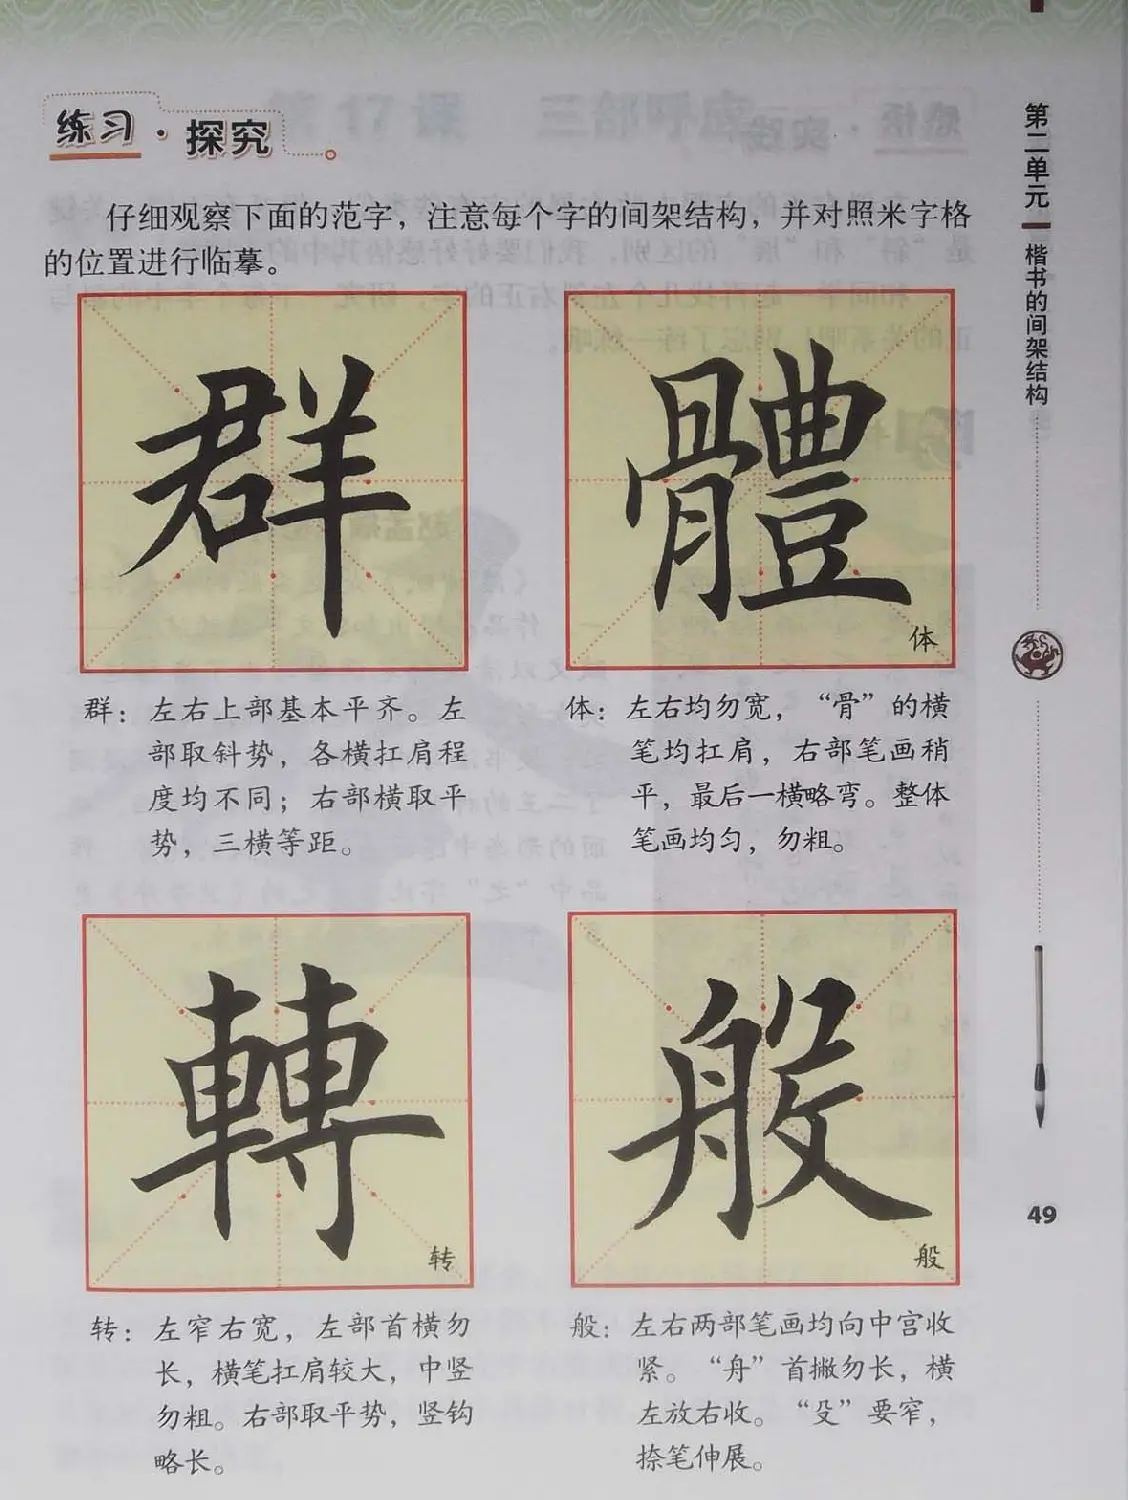 练习·探究
仔细观察下面的范字，注意每个字的间架结构，并对照米字格
的位置进行临摹。
群
體
体
群：左右上部基本平齐。左
部取斜势，各横扛肩程
度均不同；右部横取平
势，三横等距。
体：左右均勿宽，“骨”的横
笔均扛肩，右部笔画稍
平，最后一横略弯。整体
笔画均匀，勿粗。
轉
转
般
般
转：左窄右宽，左部首横勿
长，横笔扛肩较大，中竖
勿粗。右部取平势，竖钩
略长。
般：左右两部笔画均向中宫收
紧。“舟”首撇勿长，横
左放右收。“殳”要窄，
捺笔伸展。
第二单元
楷书的间架结构
49